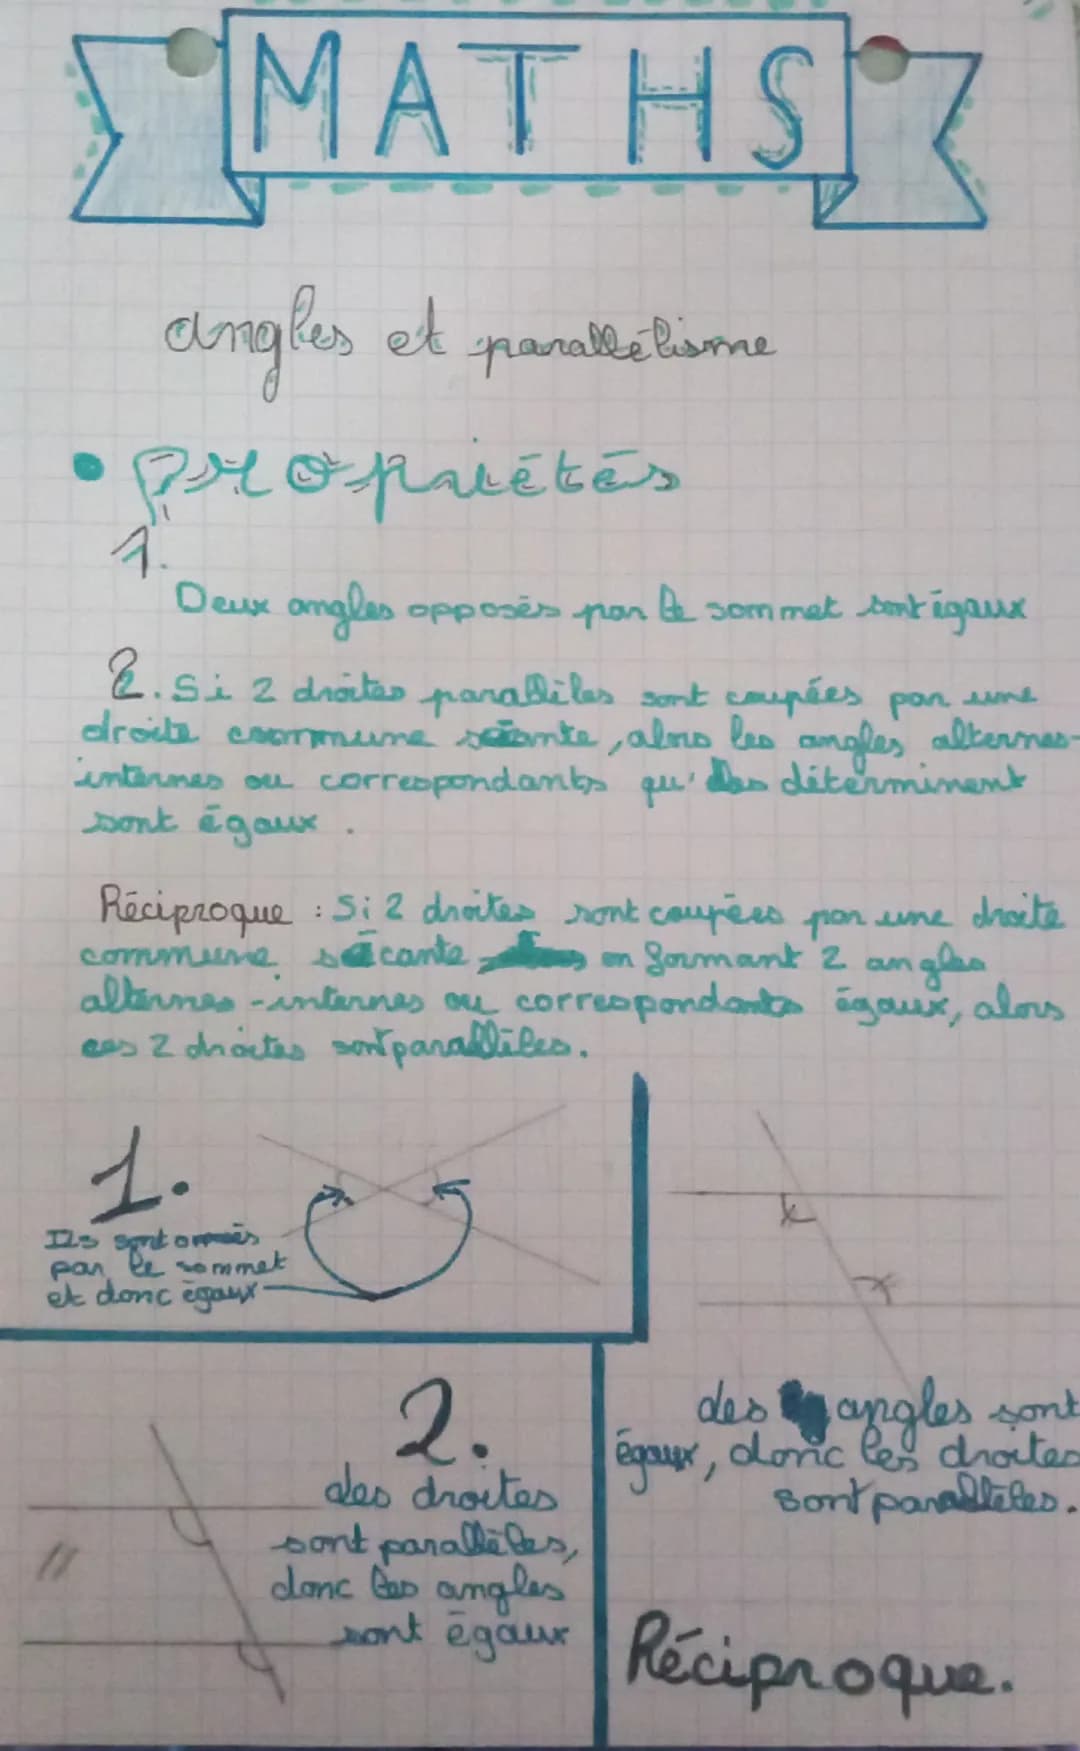 MATHS
angles et parallélisme
• Propriétés
1.
Deux angles opposés par le sommet sont égaux
2. Si 2 droites parallèles sont coupées par une
droite commune sécante, alors les angles alternes-
internes ou correspondants qu'elles déterminent
sont égaux.
Réciproque : Si 2 droites sont coupées par une droite
commune sécante en formant 2 angles
alternes-internes ou correspondants égaux, alors
ces 2 droites sont parallèles.
1.
Ils sont
par le sommet
et donc égaux
2.
des droites
sont parallèles,
donc les angles
sont égaux
//
des angles sont
égaux, donc les droites
sont parallèles.
Réciproque.